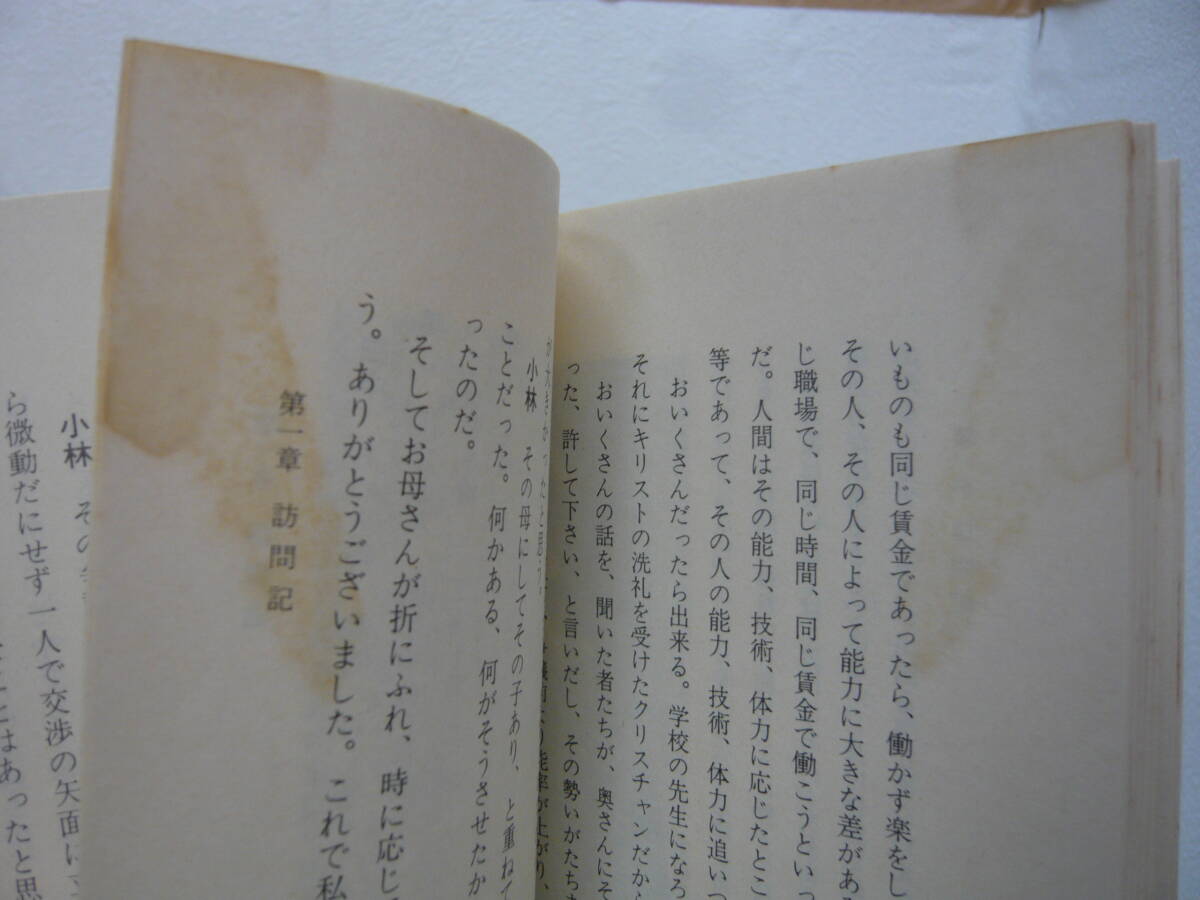 いものも同じ賃金であったら、働かず楽をし
その人、その人によって能力に大きな差があ
じ職場で、同じ時間、同じ賃金で働こうといっ
だ。人間はその能力、技術、体力に応じたとこ
等であって、その人の能力、技術、体力に追いつ
おいくさんだったら出来る。学校の先生になろ
それにキリストの洗礼を受けたクリスチャンだから
おいくさんの話を、聞いた者たちが、奥さんにそ
った、許して下さい、と言いだし、その勢いがたちま
能率が上がり、
小林　その母にしてその子あり、と重ねて
ことだった。何かある、何がそうさせたか
ったのだ。
そしてお母さんが折にふれ、時に応じ
う。ありがとうございました。これで私
第一章 訪問記
小林　その
ら微動だにせず一人で交渉の矢面に
はあったと思